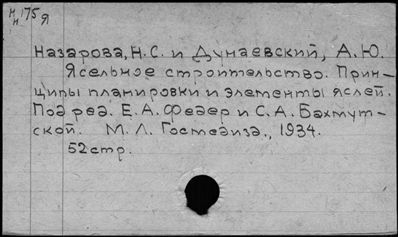 НН 175 Я
Назарова, Н.С. и Дунаевский, А.Ю.
Ясельное строительство. Прин-
ципы планировки и элементы яслей.
Под ред. Е.А. Федер и С.А. Бахмут-
ской. М. Л. Госмедизд., 1934.
52стр.